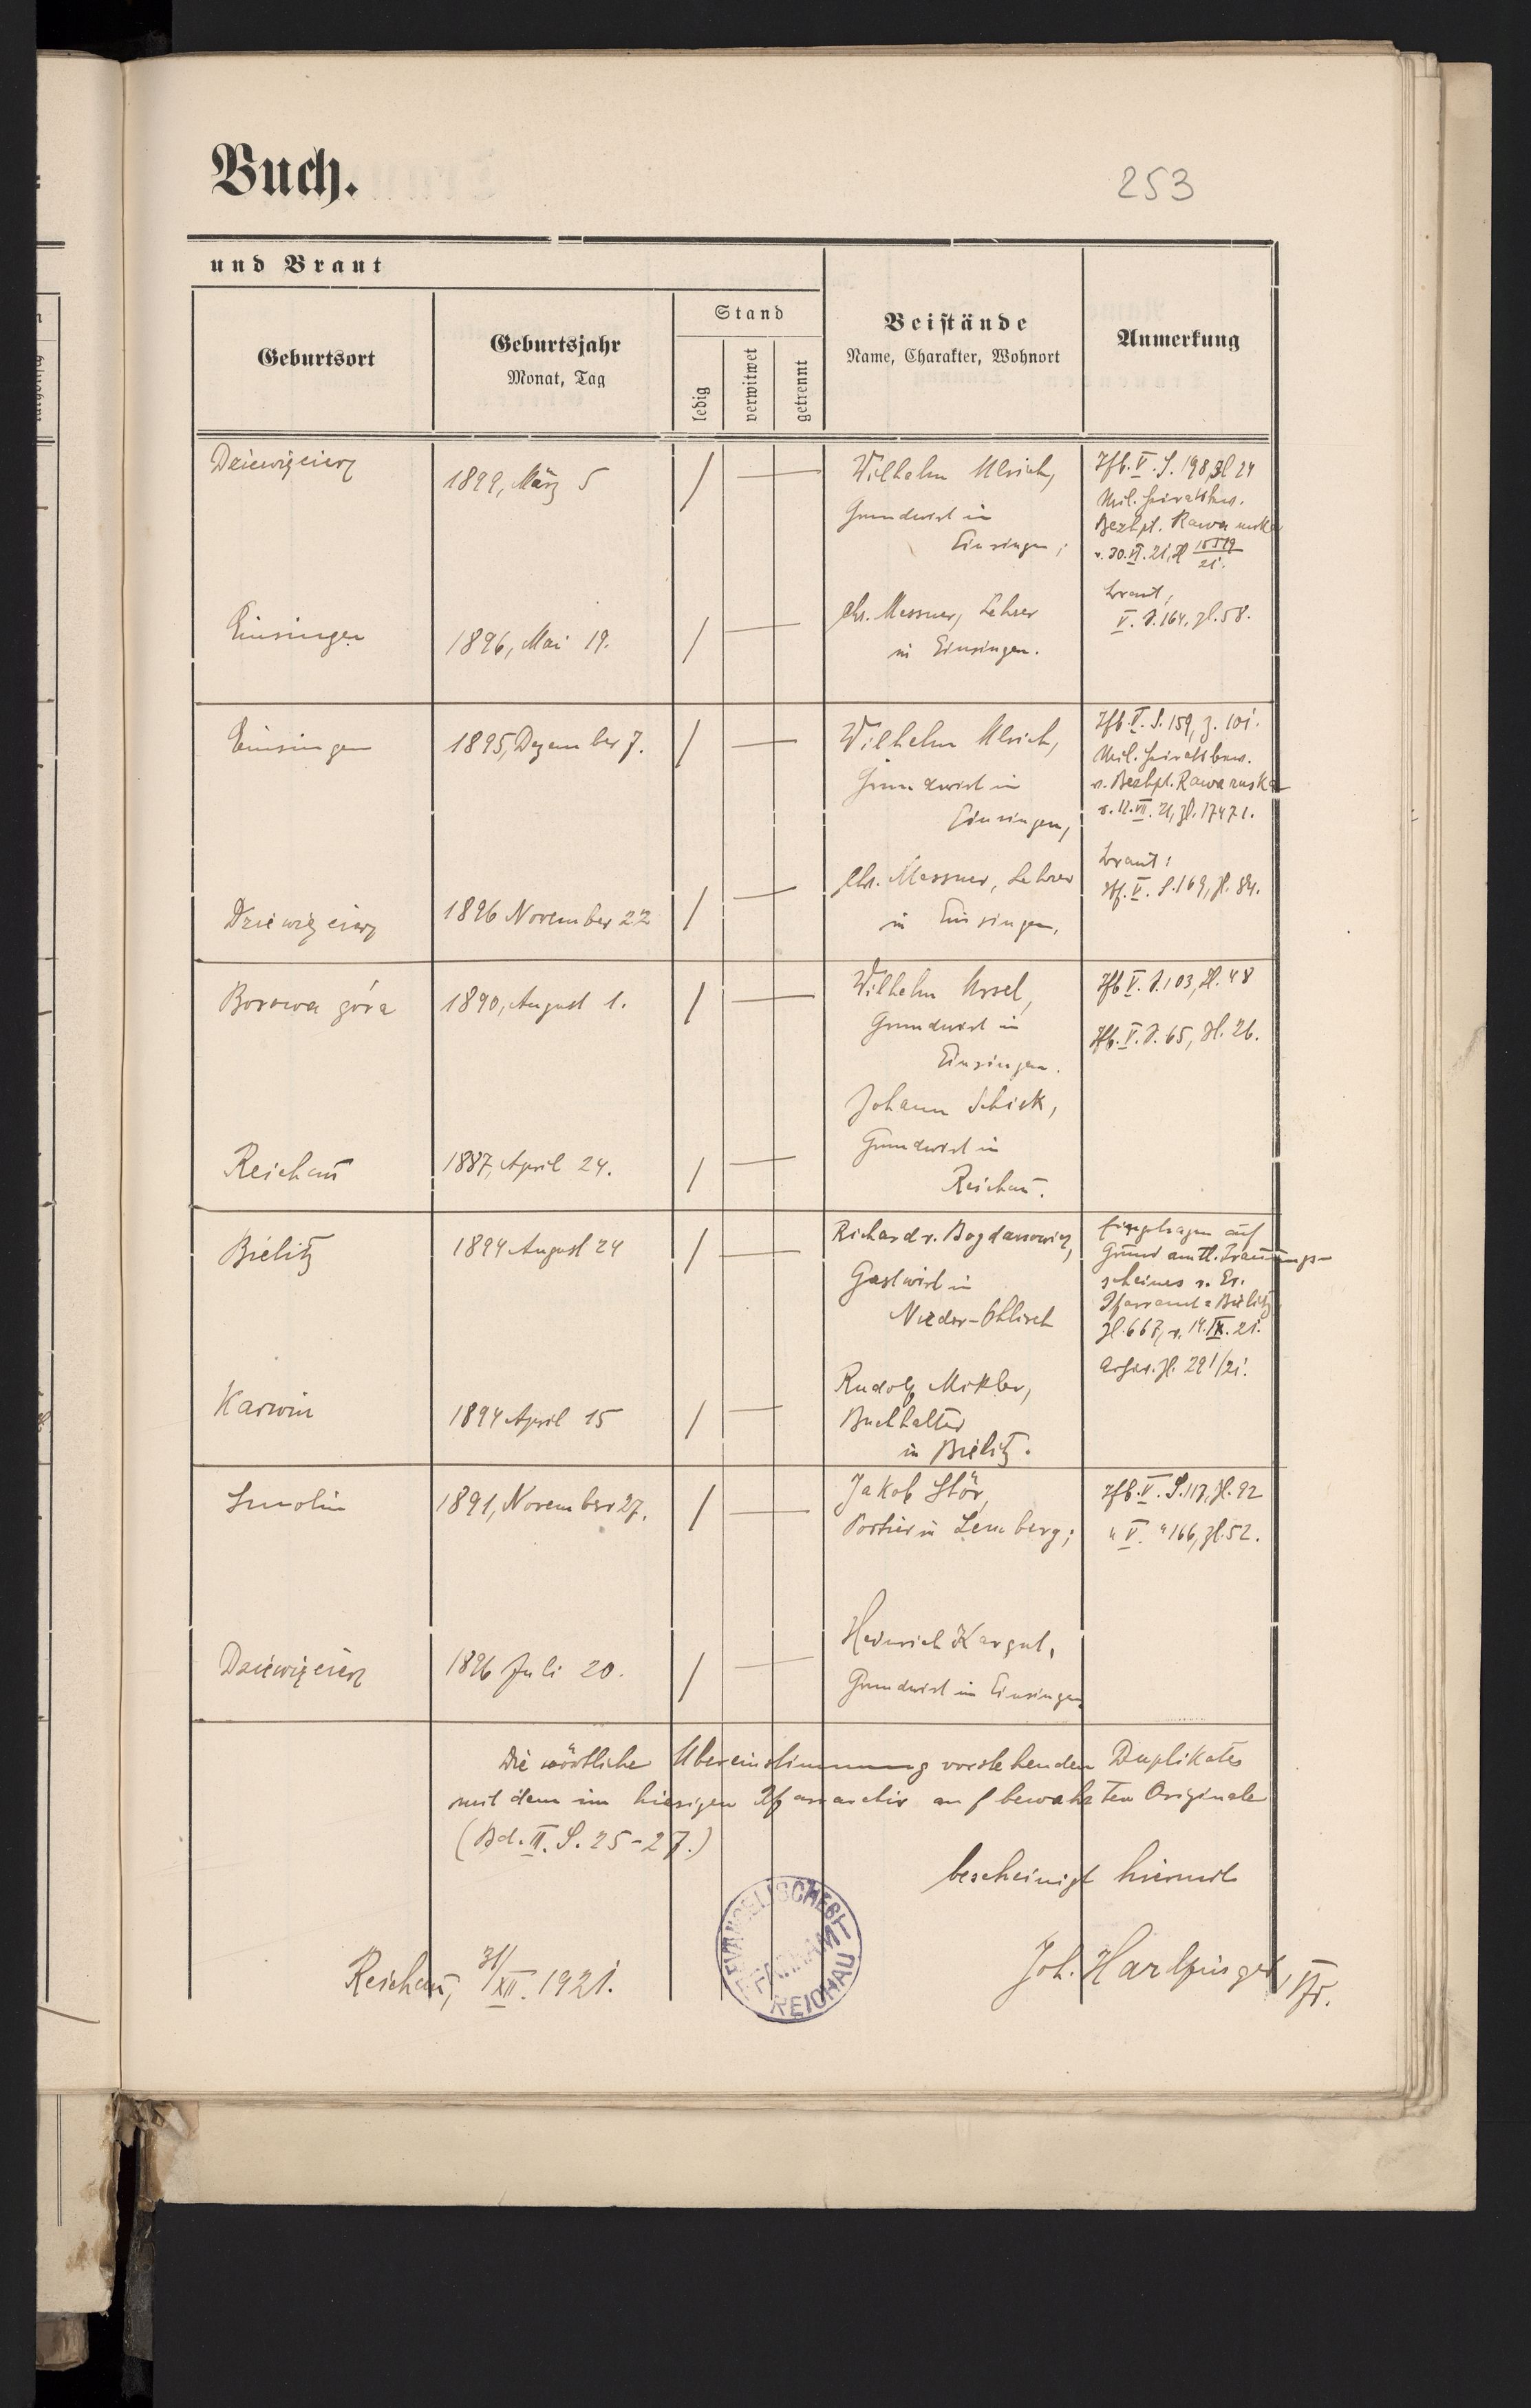 Buch.
253
und Braut
Geburtsort
Geburtsjahr
Monat, Tag
Stand
ledig
verwitwet
getrennt
Beistände
Name, Charakter, Wohnort
Anmerkung
Dziewięcierz
1899, März 5
Wilhelm Ulrich,
Grundwirt in
Einsingen;
Tfb. V. S. 198, Zl 24
Mil. Heiratsbew.
Bezhpt. Rawa ruska
v. 30. VI. 21, Zl 15519/21.
Einsingen
1896, Mai 19.
Chr. Messner, Lehrer
in Einsingen.
Braut,
V. S. 164, Zl. 58.
Einsingen
1895, Dezember 7.
Wilhelm Ulrich,
Grundwirt in
Einsingen,
Tfb. V. S. 159, Z. 101.
Mil. Heiratsbew.
v. Bezhpt. Rawa ruska
v. 12. VII. 21, Zl. 17471.
Dziewięcierz
1896 November 22
Chr. Messner, Lehrer
in Einsingen.
Braut:
Tf. V. S. 169, Zl. 84.
Borowa góra
1890, August 1.
Wilhelm Ursel,
Grundwirt in
Einsingen.
Tfb V. S. 103, Zl. 48
Tfb. V. S. 65, Zl. 26.
Reichau
1887, April 24.
Johann Schick,
Grundwirt in
Reichau.
Bielitz
1894 August 24
Richard v. Bogdanowicz,
Gastwirt in
Nieder-Ohlisch
Eingetragen auf
Grund amtl. Trauungs-
scheines v. Ev.
Pfarramt = Bielitz
Zl. 667, v. 14. IX. 21.
Zl. 291/21.
Karwin
1894 April 15
Rudolf Mikler,
Buchhalter
in Bielitz.
Smolin
1891, November 27.
Jakob Stör,
Portier in Lemberg;
Tfb. V. S. 113, Zl. 92
" V. " 166, Zl. 52.
Dziewięcierz
1896 Juli 20.
Heinrich Kargut,
Grundwirt in Einsingen
Die wörtliche Übereinstimmung vorstehenden Duplikates
mit dem im hiesigen Pfarrarchiv aufbewahrten Originale
(Bd. II. S. 25-27.)
bescheinigt hiermit
EVANGELISCHES
PFARRAMT
REICHAU
Reichau, 31/XII. 1921.
Joh. Harlfinger, Pfr.